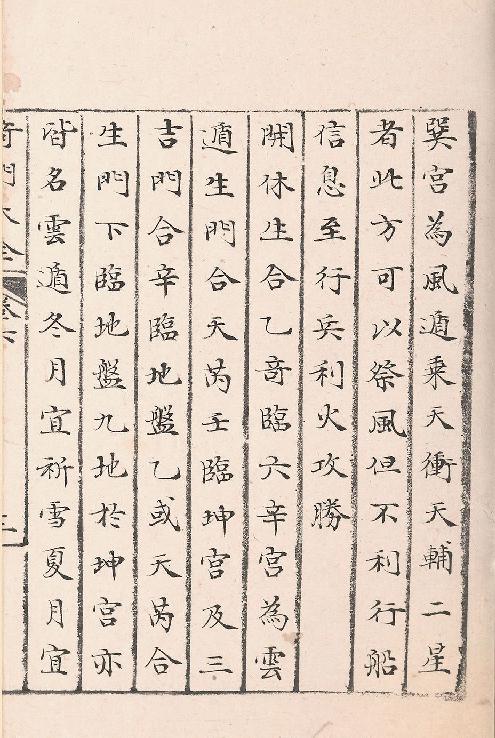 巽宮為風遁乗天衝天輔二星
者此方可以祭風但不利行船
信息至行兵利火攻勝
開休生合乙竒臨六辛宮為雲
遁生門合天芮壬臨坤宮及三
吉門合辛臨地盤乙或天芮合
生門下臨地盤九地於坤宮亦
皆名雲遁冬月宜祈雪夏月宜
竒門大全 卷六